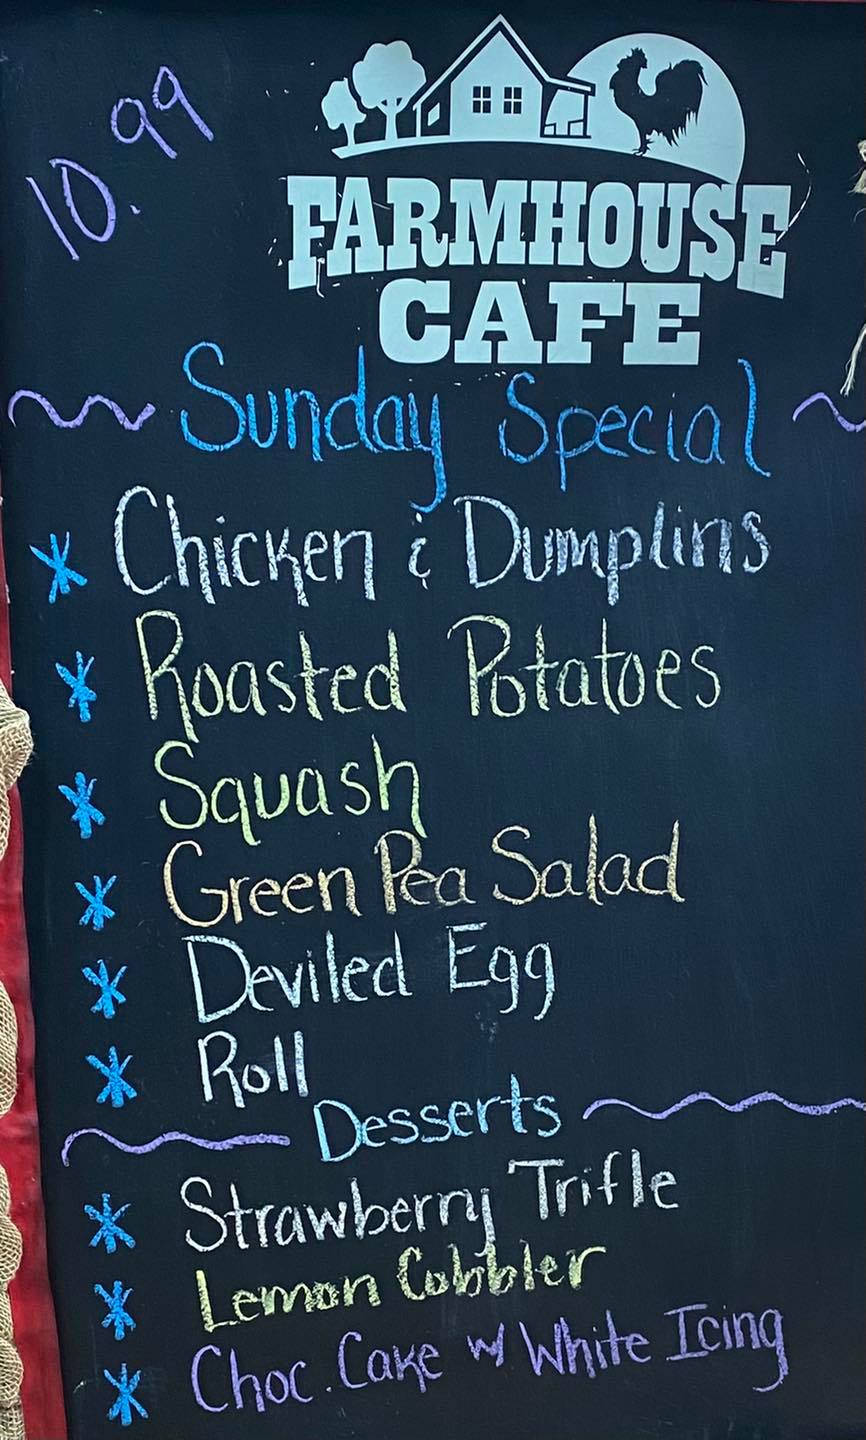 10.99
FARMHOUSE
CAFE
Sunday Special
* Chicken & Dumplins
* Roasted Potatoes
* Squash
* Green Pea Salad
* Deviled Egg
* Roll
Desserts
* Strawberry Trifle
* Lemon Cobbler
* Choc. Cake w/ White Icing